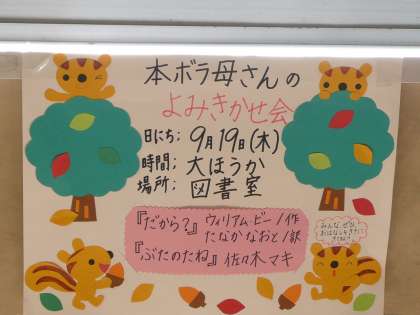 本ボラ母さんの
よみきかせ会
日にち：9月19日(木)
時間：大ほうか
場所：図書室
『だから？』ウィリアム・ビー／作
たなかなおと／訳
『ぶたのたね』佐々木マキ
みんな、ぜひ
おはなしをききに
きてね♡